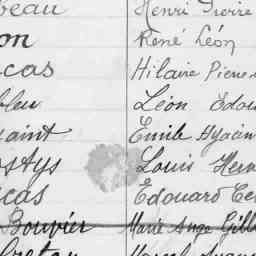 beau Henri
on René Léon
cas Hilaire Pierre
bleu Léon Edou
saint Emile Hyacin
ostys Louis Herv
cas Edouard
Bouvier Marie Ange Gill
breton Marcel